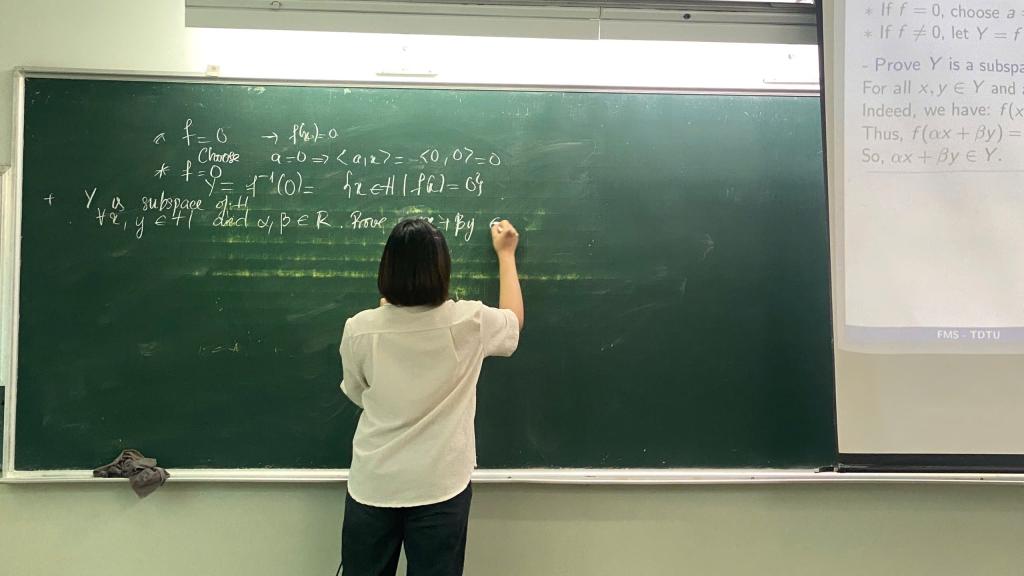 * f = 0 → f(x) = 0
Choose a = 0 ⇒ <a,x> = <0,0> = 0
* f = 0
Y = f⁻¹(0) = {x ∈ H | f(x) = 0}
+ Y is subspace of H
∀x, y ∈ H and α, β ∈ R. Prove x + βy ∈
* If f = 0, choose a =
* If f ≠ 0, let Y = f
- Prove Y is a subspa
For all x, y ∈ Y and
Indeed, we have: f(x
Thus, f(αx + βy) =
So, αx + βy ∈ Y.
FMS - TDTU